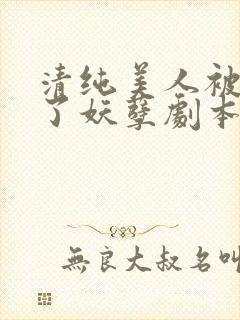 清纯美人被
了妖孽劇本
無良大叔名叫